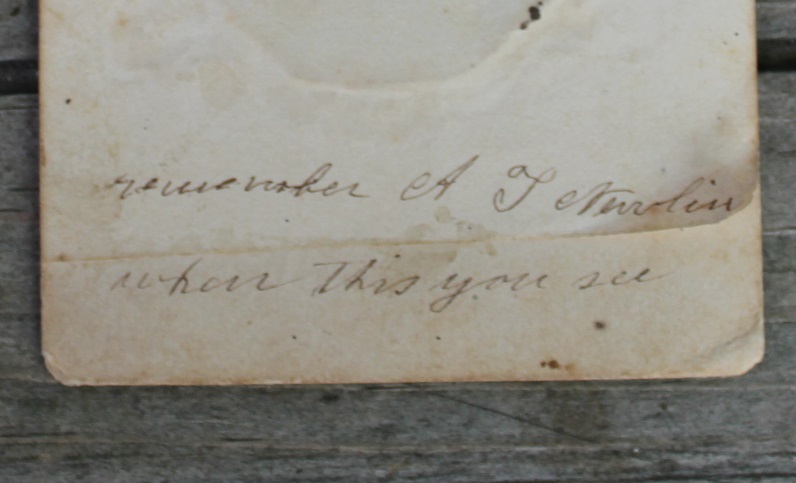 remember A T Newlin
when this you see